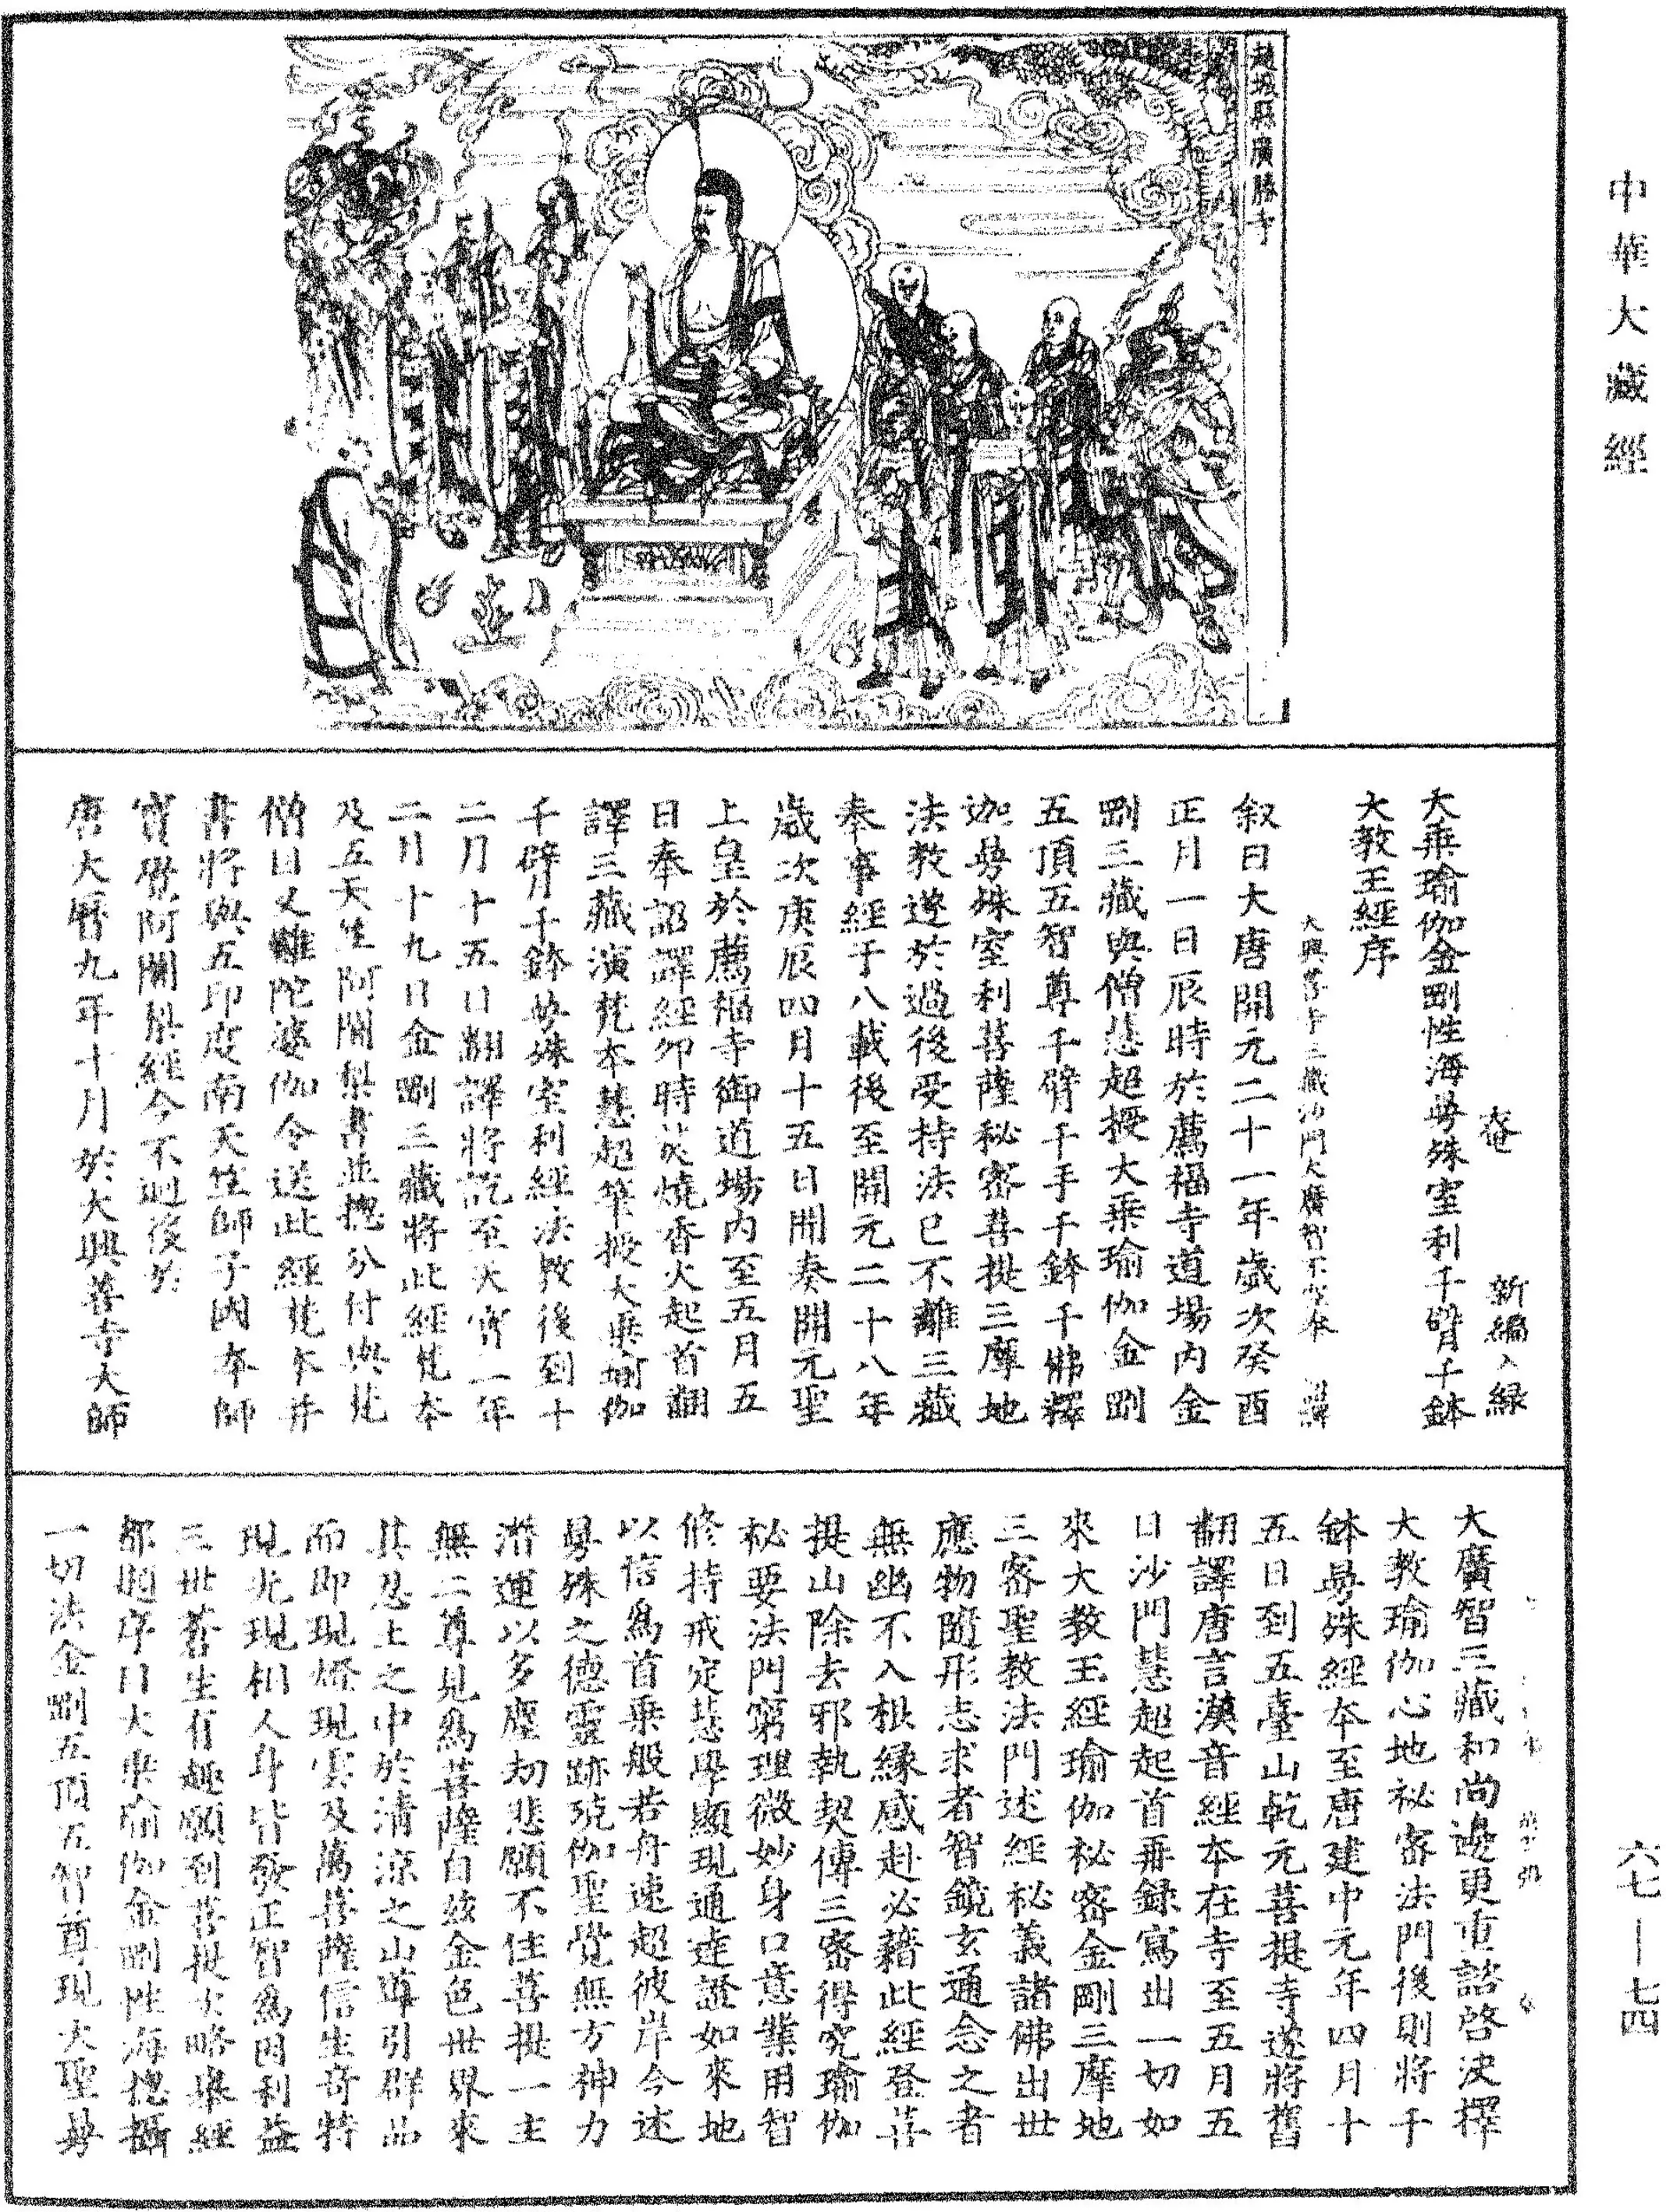 中華大藏經
趙城縣廣勝寺
新編入録
大乗瑜伽金剛性海曼殊室利千臂千鉢
大教王經序
大興善寺三藏沙門大廣智不空奉 詔譯
叙曰大唐開元二十一年歲次癸酉
正月一日辰時於薦福寺道場内金
剛三藏與僧慧超授大乗瑜伽金剛
五頂五智尊千臂千手千鉢千佛釋
迦曼殊室利菩薩秘密菩提三摩地
法教遂於過後受持法已不離三藏
奉事經于八載後至開元二十八年
歲次庚辰四月十五日開奏開元聖
上皇於薦福寺御道場内至五月五
日奉詔譯經卯時焚燒香火起首翻
譯三藏演梵本慧超筆授大乗瑜伽
千臂千鉢曼殊室利經法教後到十
二月十五日翻譯將訖至天寳一年
二月十九日金剛三藏將此經梵本
及五天竺阿闍梨書並揔分付與梵
僧目叉難陀婆伽令送此經梵夲并
書將與五印度南天竺師子國夲師
寳覺阿闍梨經今不迴後於
唐大曆九年十月於大興善寺大師
大廣智三藏和尚邊更重諮啓决擇
大教瑜伽心地祕密法門後則將千
鉢曼殊經夲至唐建中元年四月十
五日到五臺山乾元菩提寺遂將舊
翻譯唐言漢音經夲在寺至五月五
日沙門慧超起首再録寫出一切如
來大教王經瑜伽秘密金剛三摩地
三密聖教法門述經秘義諸佛出世
應物隨形志求者智鏡玄通念之者
無幽不入根縁感赴必藉此經登菩
提山除去邪執契傳三密得究瑜伽
秘要法門窮理微妙身口意業用智
修持戒定慧學顯現通達證如來地
以信爲首乗般若舟速超彼岸今述
曼殊之德靈跡殑伽聖覺無方神力
潜運以多塵刼悲願不住菩提一主
無二尊見爲菩薩自兹金色世界來
其忍土之中於清凉之山導引群品
而即現燈現雲及萬菩薩信生奇特
現光現相人身皆發正智爲因利益
三世蒼生有趣願到菩提大略舉經
都題序目大乗瑜伽金剛性海揔攝
一切法金剛五頂五智尊現大聖曼
六七—七四